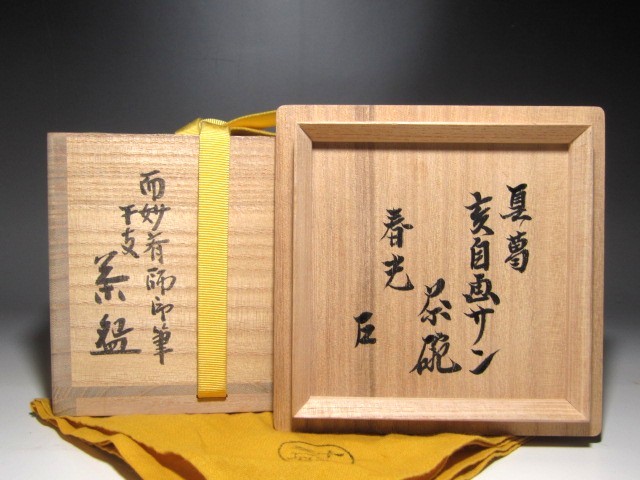 真葛
亥自画サン
茶碗
春光
而妙斎師御筆
干支
茶盌